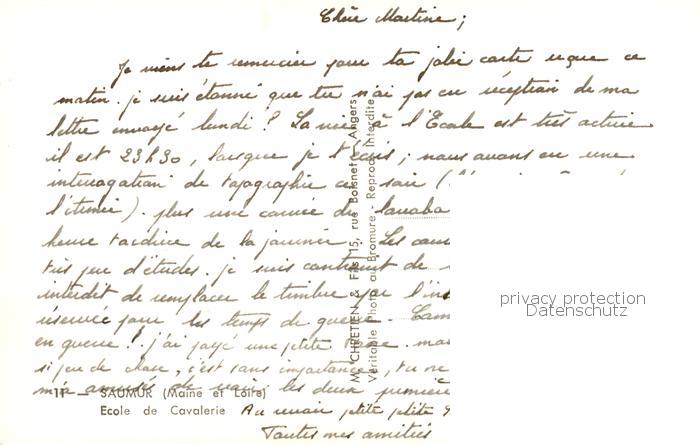 Chère Martine;
Je viens te remercier pour ta jolie carte reçue ce
matin. je suis étonné que tu n'ai pas eu réception de ma
lettre envoyé lundi? La vie à l'Ecole est très active
il est 23h30, lorsque je t'écris; nous avons eu une
interrogation de topographie ce soir (
). plus une corvée de
heure tardive de la journée. Les cour
très peu d'études. je suis contraint de
interdit de remplacer le timbre par l'in
réservée pour les temps de guerre.
en guerre!. j'ai payé une petite taxe. mai
si peu de chose, c'est sans importance, tu ne
m'a amusés de voir les deux première
Au revoir petite petite
Toutes mes amitiés
11 - SAUMUR (Maine et Loire)
Ecole de Cavalerie
M. CHRETIEN & Fils, 15, rue Boisnet - Angers
Véritable Photo au Bromure - Reprod. Interdite
privacy protection
Datenschutz